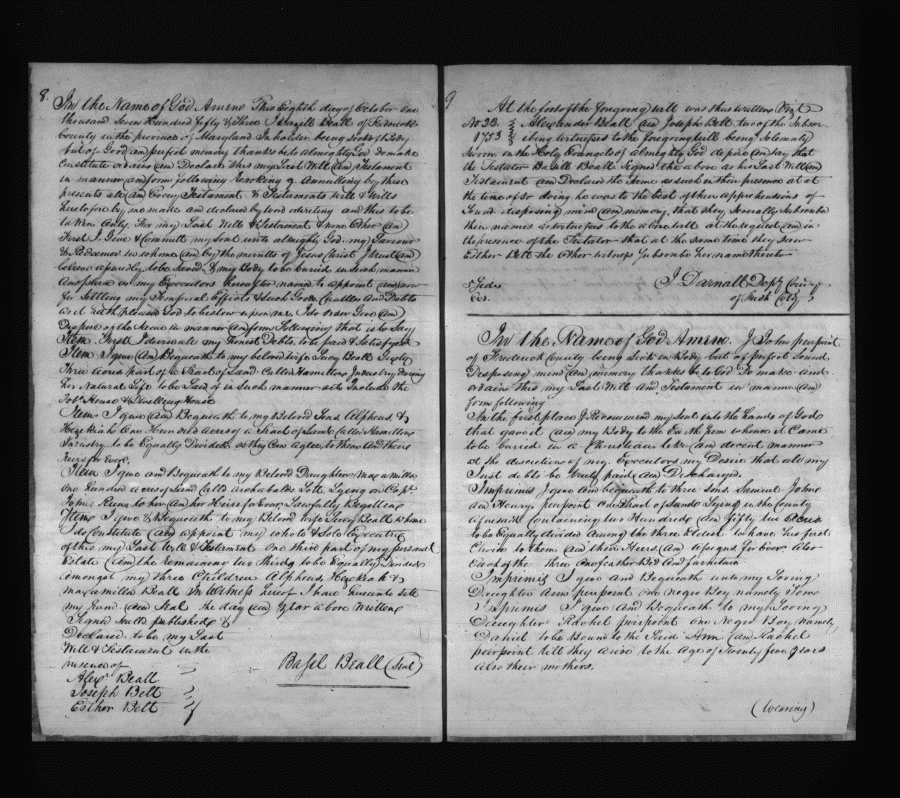 8.
In the Name of God Amene This Eighth day of October one
thousand Seven Hundred fifty & three I Bazill Beall of Frederick
County in the province of Maryland Inholder being Sick of Body
but of Good and perfect memory thanks be to Almighty God do make
Constitute ordain and Declare this my Last Will and Testament
in manner and form following revoking & Annulling by these
presents all and Every Testament & Testaments will & wills
heretofore by me made and declared by word or writing and this to be
taken only for my Last Will & Testament & none Other and
First I Give & Committ my soul unto almighty God my Saviour
& Redeemer in whome and by the meritts of Jesus Christ I trust and
believe assuredly to be Saved & my Body to be buried in such manner
and place as my Executors hereafter named to appoint and now
for Settling my Temporal Effects & such Goods Chattles And Debts
as it hath pleased God to bestow upon me I do order Give and
Despose of the Same in manner and form Following that is to Say
Item First I devise all my Honest Debts to be paid & Satisfyed
Item I give and Bequeath to my beloved wife Beall Seventy
Three acres part of a Tract of Land Called Hamiltons Industry During
her Natural Life to be Laid of in such manner as to Include the
Tobo House & Dwelling House
Item I give and Bequeath to my Beloved Sons Alpheus &
Hezekiah One Hundred acres of a tract of Land called Hamiltons
Industry to be Equally Divided as they Can Agree to them And there
heirs for Ever,
Item I give and Bequeath to my Beloved Daughter Maxamilla
One Hundred acres of Land Calld Archabalds Lott Lying on Capt
Johns Runs to her and her Heirs for Ever Lawfully Begotten
Item I give & Bequeath to my Beloved wife Beall whome
I do Constitute and appoint my whole & Sole Executrix
of this my Last Will & Testament one third part of my personal
Estate and the remainder two thirds to be Equally Divided
amongst my three Children Alpheus Hezekiah &
Maxamilla Beall In Witness hereof I have hereunto sett
my hand and Seal the day and year above Written
Signed Seald published &
Declared to be my Last
Will & Testament in the
presence of
Basil Beall (Seal)
Alexr Beall
Joseph Belt
Esther Belt
9
At the foot of the foregoing will was thus written (Viz)
No 23. Alexander Beall and Joseph Belt two of the Subscr
1753 ibing witnesses to the foregoing will being Solemnly
Sworn on the Holy Evangels of almighty God depose and say that
the Testator Bazill Beall Signed the above as his Last Will and
Testament and Declared the Same as such in their presence at
the time of so doing he was to the best of their apprehensions of
Sound disposing mind and memory, that they Severally Subscribed
their names as witnesses to the above will at the request and in
the presence of the Testator that at the same time they saw
Esther Belt the other witness Subscribe her name thereto
J. Darnall Depty Comry
of Fredk Coty
In the Name of God Amene. I John pierpoint
of Frederick County being Sick in Body but of perfect Sound
Desposing mind and memory thanks be to God Do make and
ordain this my Last Will And Testament in manner and
form following
In the first place I Recommend my Soul into the hands of God
that gave it and my Body to the Earth from whence it Came
to be buried in a Christian like and decent manner
at the discretion of my Executors my Desire that all my
Just debts be truly paid and Discharged.
Imprimis I give and bequeath to three Sons Samuel John
and Henry pierpoint one tract of Lande Lying in the County
aforesaid Containing two Hundred and fifty two Acres
to be Equally divided Among the three Eldest to have his first
Choice to them and their Heirs and assigns for Ever Also
Each of the three One feather Bed And furniture
Imprimis I give and Bequeath unto my Loving
Daughter Ann pierpoint one negro Boy namely Tom
Imprimis I give and Bequeath to my Loving
Daughter Rachel pierpoint one Negro Boy namely
Daniel to be Bound to the Said Ann and Rachel
pierpoint till they arive to the Age of Twenty four years
also their mothers.
(wearing)